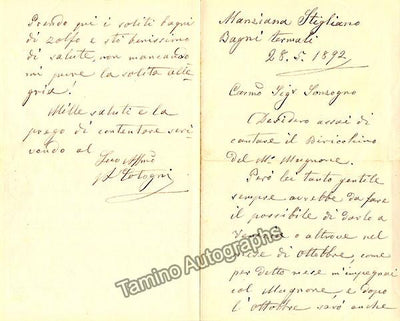 Manziana Stigliano
Bagni termali
28. 5. 1892.
Carmo Sigr Sonzogno
Desidero assai di
cantare il Birichino
del Mo Mugnone.
Però lei tanto gentile
sempre avrebbe da fare
il possibile di darlo a
o altrove nel
mese di Ottobre, come
per detto mese m'impegnai
col Mugnone, e dopo
l'Ottobre sarò anche
Prendo qui i soliti bagni
di zolfo e stò benissimo
di salute, non mancando
mi pure la solita alle
gria!
Mille saluti e la
prego di contentare scri
vendo al
Suo Affmo
A Cotogni
Tamino Autographs